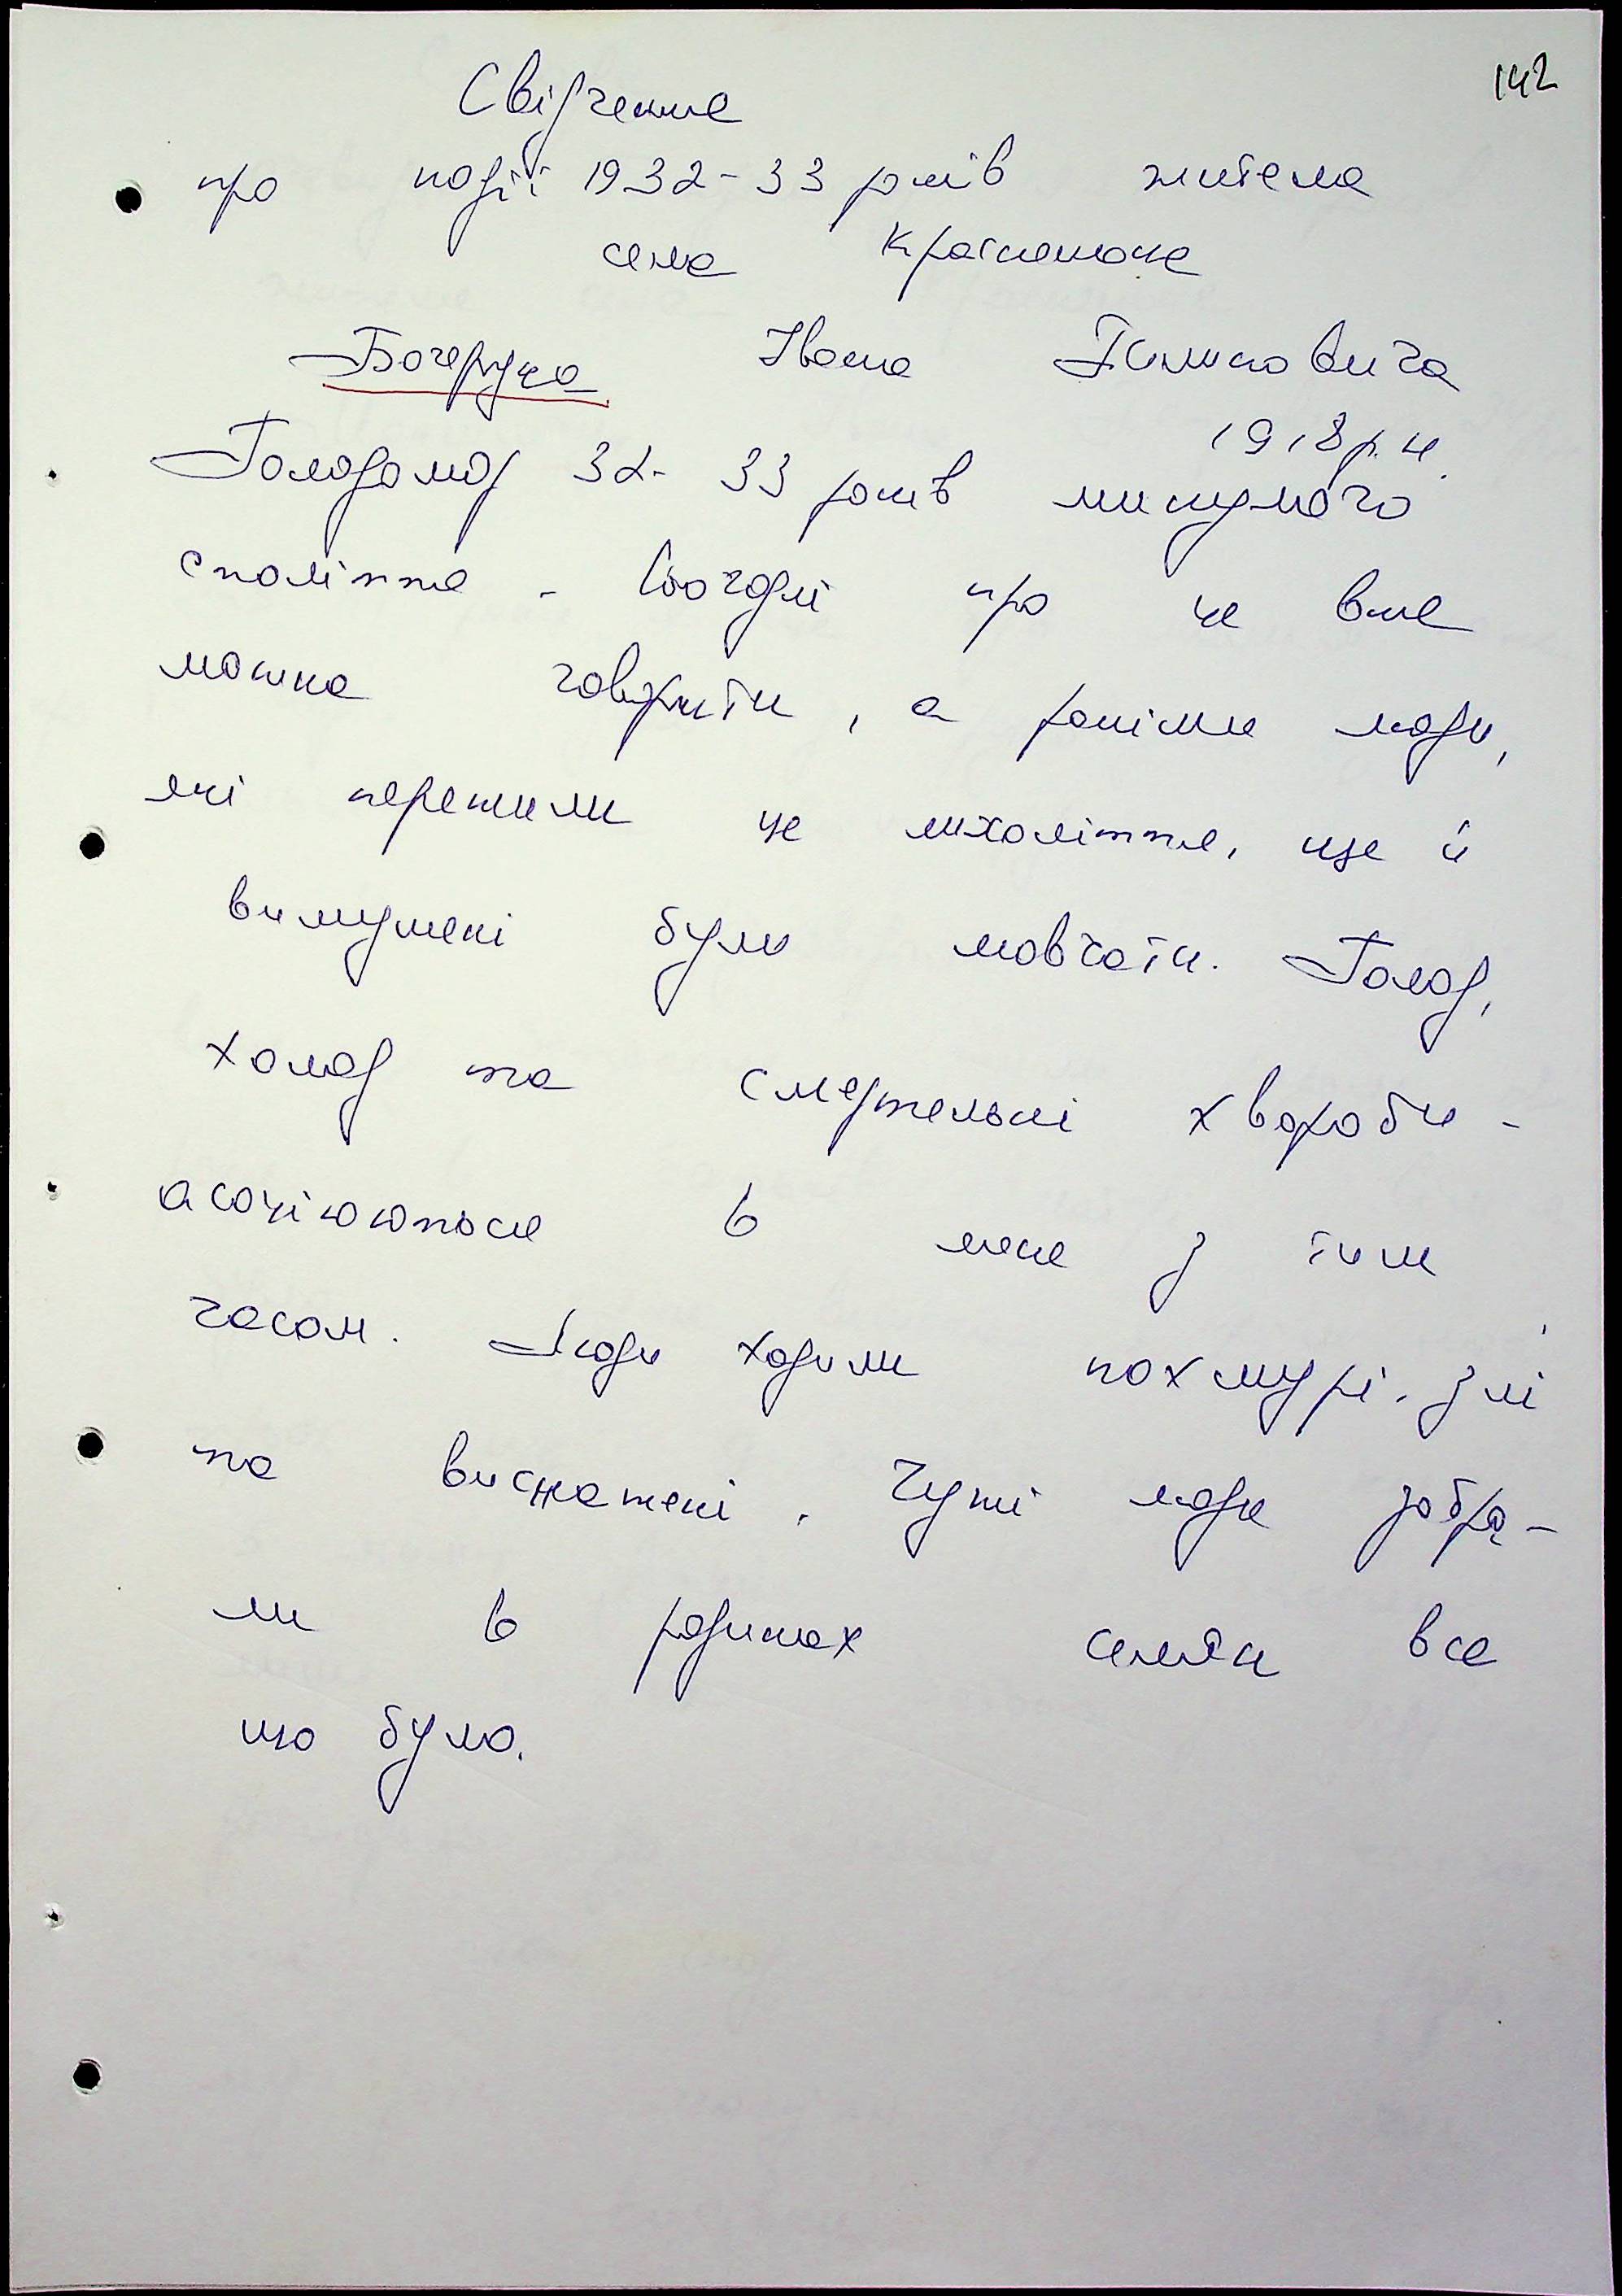 142
Свідчення
про події 1932-33 років жителя
села
Івана Пилиповича
1918 р. н.
Голодомор 32-33 років минулого
століття - сьогодні про це вже
можна говорити, а раніше люди,
які пережили це лихоліття, ще й
вимушені були мовчати. Голод,
холод та смертельні хвороби -
асоціюються в мене з тим
часом. Люди ходили похмурі, злі
та виснажені, чужі люди забра-
ли в родинах все
що було.